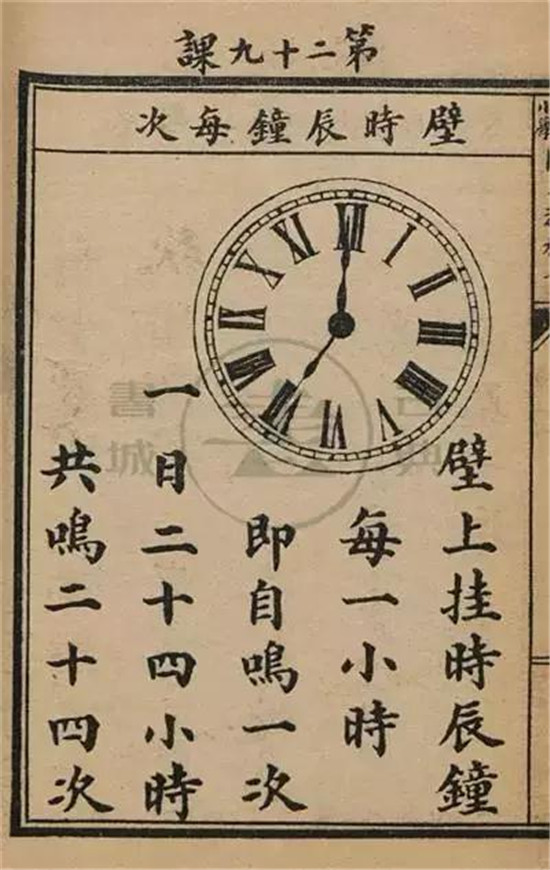 第二十九課
壁時辰鐘每次
XII
I
II
III
IIII
V
VI
VII
VIII
IX
X
XI
壁上挂時辰鐘
每一小時
即自鳴一次
一日二十四小時
共鳴二十四次
書城